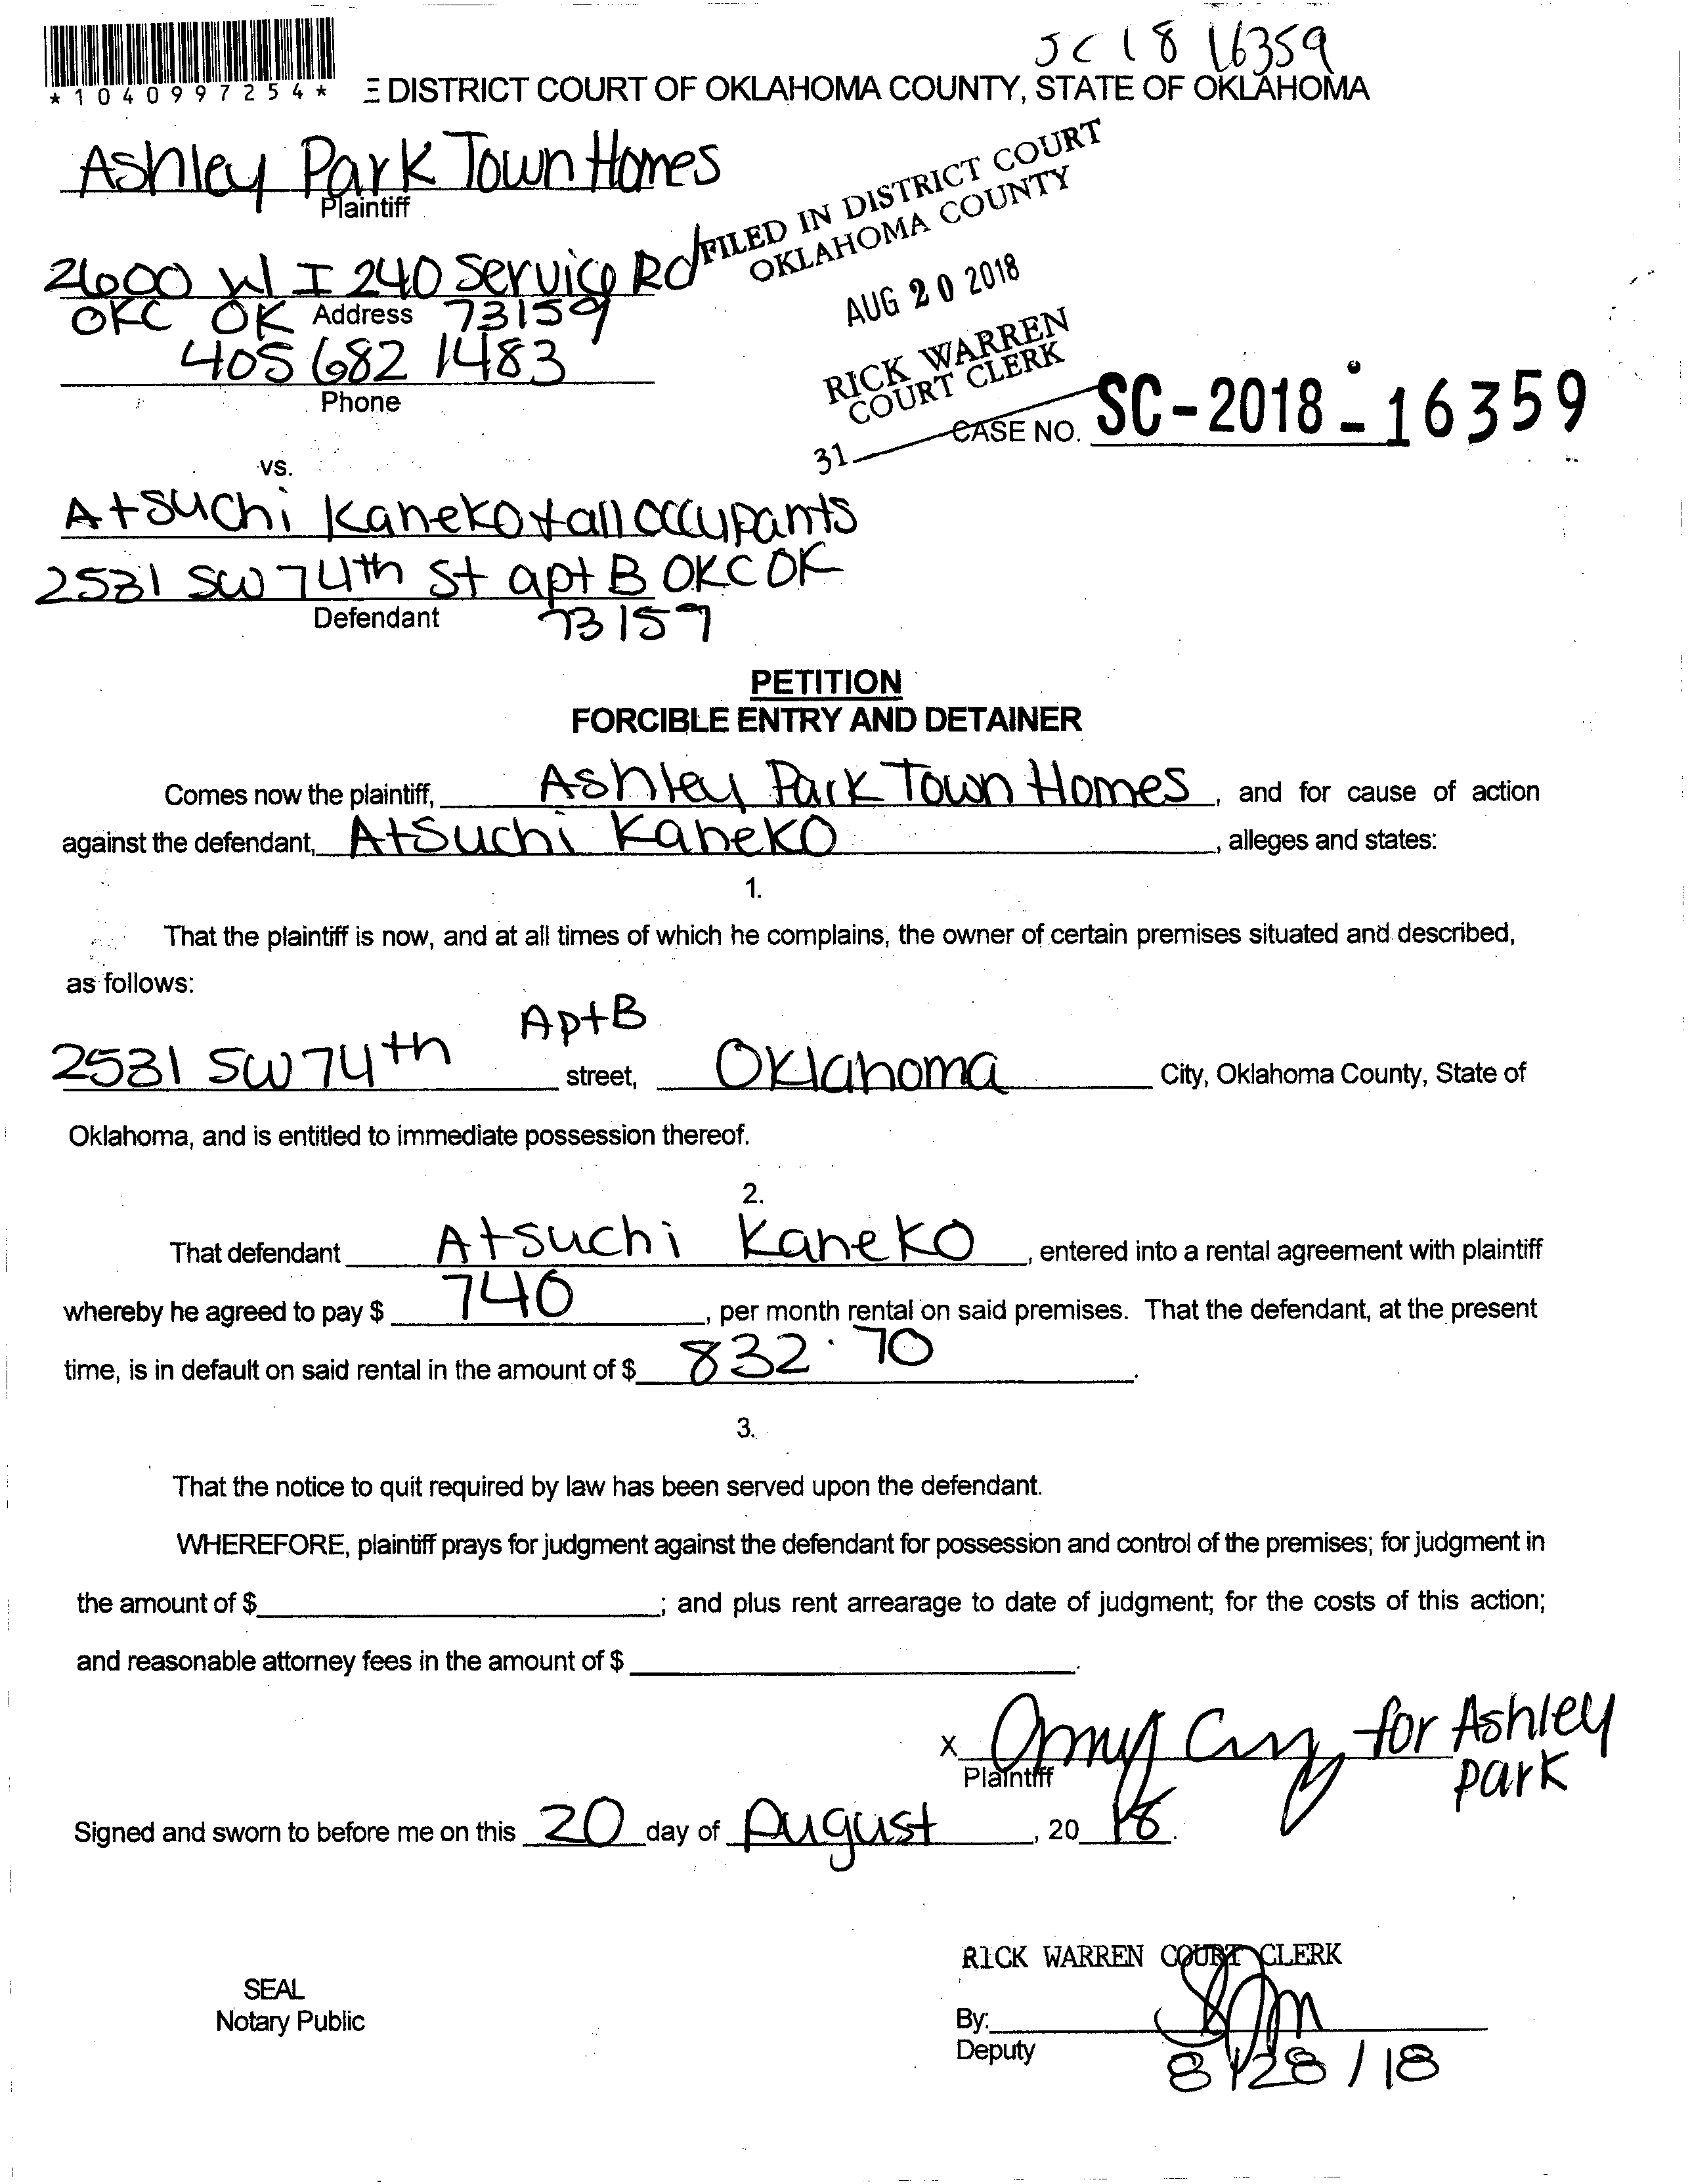 SC18 16359
*1040997254*
E DISTRICT COURT OF OKLAHOMA COUNTY, STATE OF OKLAHOMA
Ashley Park Town Homes
Plaintiff
FILED IN DISTRICT COURT
OKLAHOMA COUNTY
2600 W I 240 Service Rd
AUG 20 2018
OKC OK Address 73159
RICK WARREN
COURT CLERK
405 682 1483
Phone
31
CASE NO. SC-2018-16359
vs.
Atsuchi Kaneko + all occupants
2531 SW 74th St apt B OKC OK
Defendant 73159
PETITION
FORCIBLE ENTRY AND DETAINER
Comes now the plaintiff, Ashley Park Town Homes, and for cause of action
against the defendant, Atsuchi Kaneko, alleges and states:
1.
That the plaintiff is now, and at all times of which he complains, the owner of certain premises situated and described,
as follows:
Apt B
2531 SW 74th street, Oklahoma City, Oklahoma County, State of
Oklahoma, and is entitled to immediate possession thereof.
2.
That defendant Atsuchi Kaneko, entered into a rental agreement with plaintiff
whereby he agreed to pay $ 740, per month rental on said premises. That the defendant, at the present
time, is in default on said rental in the amount of $ 832.70.
3.
That the notice to quit required by law has been served upon the defendant.
WHEREFORE, plaintiff prays for judgment against the defendant for possession and control of the premises; for judgment in
the amount of $ ; and plus rent arrearage to date of judgment; for the costs of this action;
and reasonable attorney fees in the amount of $ .
x for Ashley
Plaintiff park
Signed and sworn to before me on this 20 day of August, 20 18.
RICK WARREN COURT CLERK
SEAL
Notary Public
By:
Deputy
8/28/18